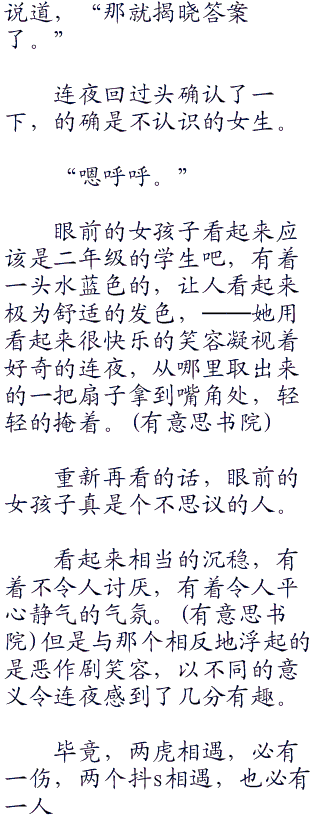 说道，“那就揭晓答案
了。”
连夜回过头确认了一
下，的确是不认识的女生。
“嗯呼呼。”
眼前的女孩子看起来应
该是二年级的学生吧，有着
一头水蓝色的，让人看起来
极为舒适的发色，——她用
看起来很快乐的笑容凝视着
好奇的连夜，从哪里取出来
的一把扇子拿到嘴角处，轻
轻的掩着。(有意思书院)
重新再看的话，眼前的
女孩子真是个不思议的人。
看起来相当的沉稳，有
着不令人讨厌，有着令人平
心静气的气氛。(有意思书
院)但是与那个相反地浮起的
是恶作剧笑容，以不同的意
义令连夜感到了几分有趣。
毕竟，两虎相遇，必有
一伤，两个抖s相遇，也必有
一人